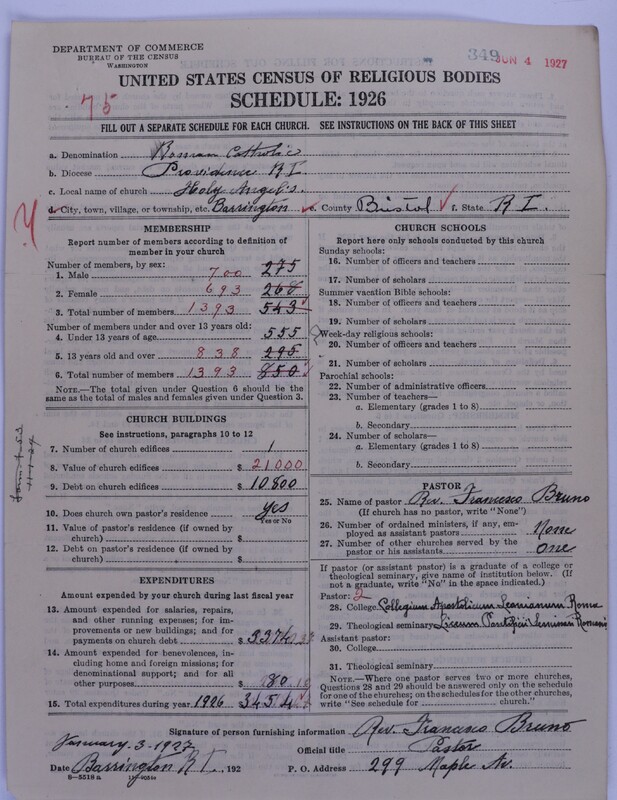 DEPARTMENT OF COMMERCE
BUREAU OF THE CENSUS
WASHINGTON
349 JUN 4 1927
UNITED STATES CENSUS OF RELIGIOUS BODIES
75
SCHEDULE: 1926
FILL OUT A SEPARATE SCHEDULE FOR EACH CHURCH. SEE INSTRUCTIONS ON THE BACK OF THIS SHEET
a. Denomination Roman Catholic
b. Diocese Providence R I
c. Local name of church Holy Angels.
d. City, town, village, or township, etc. Barrington e. County Bristol f. State R I.
MEMBERSHIP
Report number of members according to definition of
member in your church
Number of members, by sex:
1. Male 700 275
2. Female 693 268
3. Total number of members 1393 543
Number of members under and over 13 years old:
4. Under 13 years of age 555
5. 13 years old and over 838 295
6. Total number of members 1393 850
NOTE.—The total given under Question 6 should be the
same as the total of males and females given under Question 3.
CHURCH BUILDINGS
See instructions, paragraphs 10 to 12
7. Number of church edifices 1
8. Value of church edifices $ 21000
9. Debt on church edifices $ 10800
10. Does church own pastor's residence yes
Yes or No
11. Value of pastor's residence (if owned by
church) $
12. Debt on pastor's residence (if owned by
church) $
EXPENDITURES
Amount expended by your church during last fiscal year
13. Amount expended for salaries, repairs,
and other running expenses; for im-
provements or new buildings; and for
payments on church debt $ 3274
14. Amount expended for benevolences,
including home and foreign missions; for
denominational support; and for all
other purposes $ 180
15. Total expenditures during year 1926 $ 3454
CHURCH SCHOOLS
Report here only schools conducted by this church
Sunday schools:
16. Number of officers and teachers
17. Number of scholars
Summer vacation Bible schools:
18. Number of officers and teachers
19. Number of scholars
Week-day religious schools:
20. Number of officers and teachers
21. Number of scholars
Parochial schools:
22. Number of administrative officers
23. Number of teachers—
a. Elementary (grades 1 to 8)
b. Secondary
24. Number of scholars—
a. Elementary (grades 1 to 8)
b. Secondary
PASTOR
25. Name of pastor Rev. Francesco Bruno
(If church has no pastor, write "None")
26. Number of ordained ministers, if any, em-
ployed as assistant pastors None
27. Number of other churches served by the
pastor or his assistants one
If pastor (or assistant pastor) is a graduate of a college or
theological seminary, give name of institution below. (If
not a graduate, write "No" in the space indicated.)
Pastor: 2
28. College Collegium Apostolicum Leonianum Roma
29. Theological seminary Liceum Pontificii Seminari Romani
Assistant pastor:
30. College
31. Theological seminary
NOTE.—Where one pastor serves two or more churches,
Questions 28 and 29 should be answered only on the schedule
for one of the churches; on the schedules for the other churches,
write "See schedule for church."
Signature of person furnishing information Rev. Francesco Bruno
January-3-1927 Official title Pastor
Date Barrington R I., 192 P. O. Address 299 Maple Av.
8—5518 a